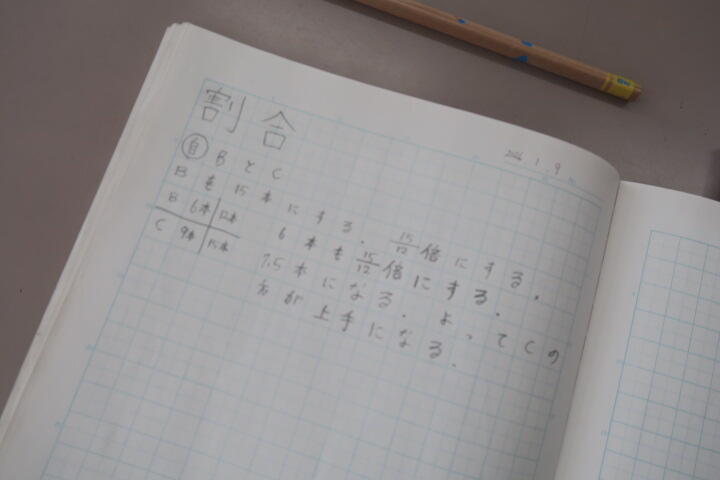 割合
1.9
自 B と C
Bを15本にする。 15/12倍にする。
B 6本 12本 6本を15/12倍にする。
C 9本 15本 7.5本になる。よってCの
方が上手になる。